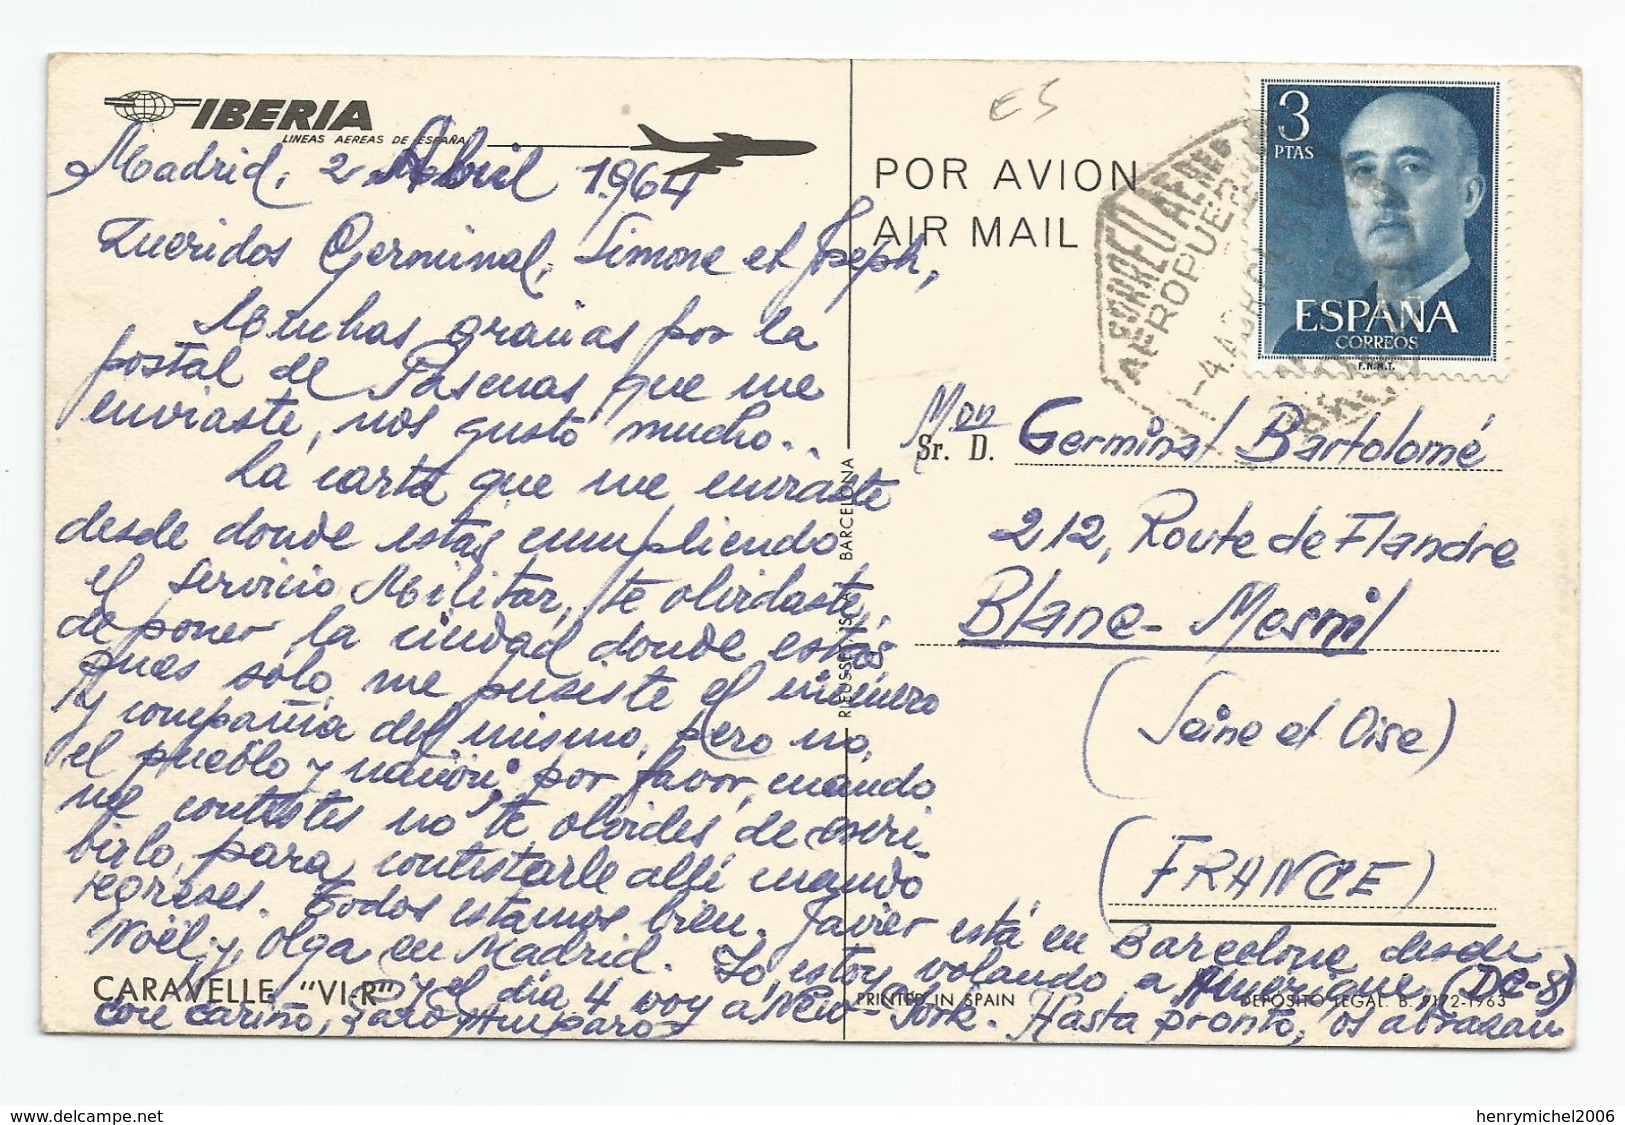 IBERIA
LINEAS AEREAS DE ESPAÑA
Madrid, 2 Abril 1.964
Queridos Germinal, Simone et Joseph,
Muchas gracias por la
postal de Pascuas que me
enviaste, nos gustó mucho..
La carta que me enviaste
desde donde estás cumpliendo
el Servicio Militar, te olvidaste,
de poner la ciudad donde estás
pues solo me pusiste el número
y compañia del mismo, pero no,
el pueblo y nación; por favor, cuando
me contestes no te olvides de escri-
birlo, para contestarle allí cuando
regreses. Todos estamos bien. Javier está en Barcelona desde
Noël y Olga en Madrid. Yo, estoy volando a Amerique (DC-8)
y el día 4 voy a New-York. Hasta pronto, os abrazan
con cariño, Amparo
CARAVELLE "VI-R"
RIEUSSET, S. A. BARCELONA
PRINTED IN SPAIN
DEPOSITO LEGAL. B. 9172-1963
ES
POR AVION
AIR MAIL
CORREO AEREO
AEROPUERTO
-4.ABR
3
PTAS
ESPAÑA
CORREOS
F.N.M.T.
Mon
Sr. D. Germinal Bartolomé
212, Route de Flandre
Blanc-Mesnil
(Seine et Oise)
(FRANCE)
henrymichel2006